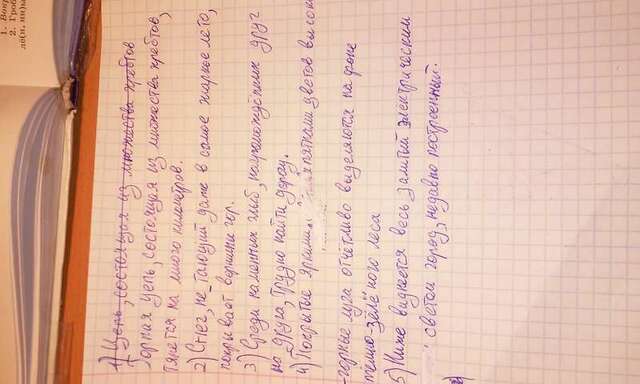 1. Вокр
2. Гроб
1) Цепь, состоящая из множества хребтов
Горная цепь, состоящая из множества хребтов,
тянется на много километров.
2) Снег, не тающий даже в самое жаркое лето,
покрывает вершины гор.
3) Среди каменных глыб, нагромождённых друг
на друга, трудно найти дорогу.
4) Покрытые яркими пятнами цветов высоко
-горные луга отчётливо выделяются на фоне
тёмно-зелёного леса
5) Ниже виднеется весь залитый электрическим
светом город, недавно построенный.